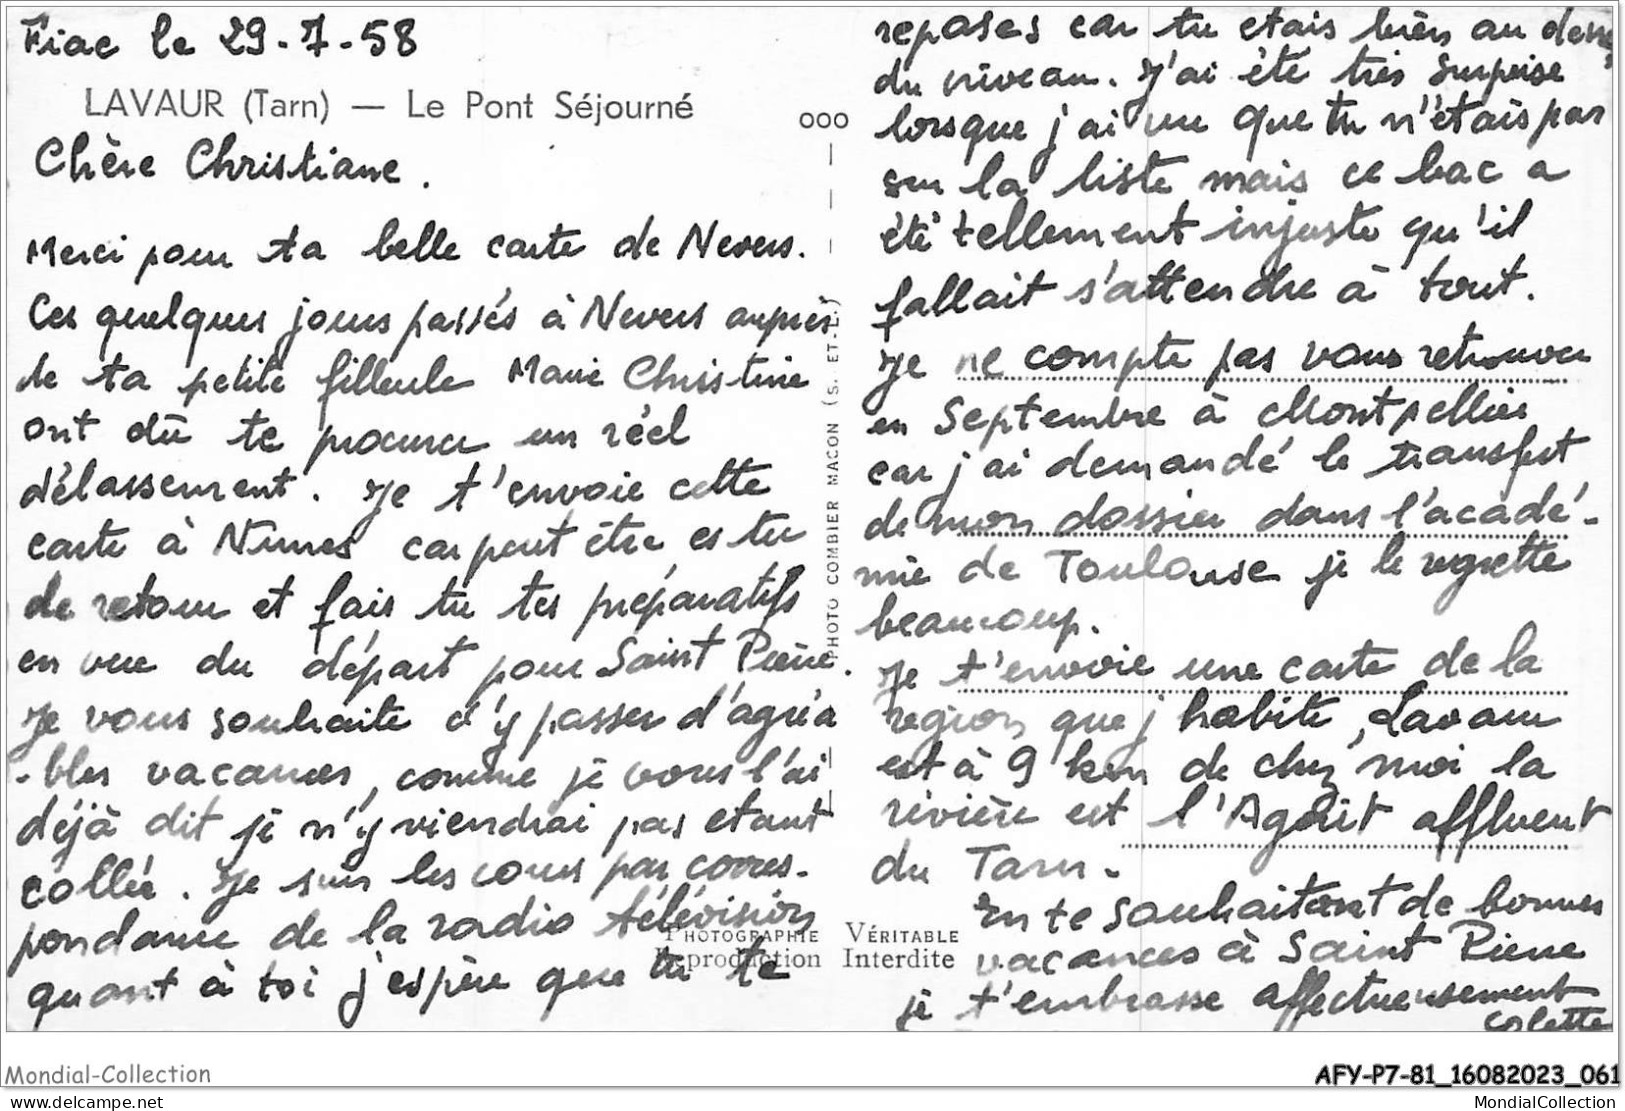 Fiac le 29-7-58
LAVAUR (Tarn) — Le Pont Séjourné
Chère Christiane.
Merci pour ta belle carte de Nevers.
Ces quelques jours passés à Nevers auprès
de ta petite filleule Marie Christine
ont dû te procurer un réel
délassement. Je t'envoie cette
carte à Nimes car peut être es tu
de retour et fais tu tes préparatifs
en vue du départ pour Saint Pierre.
Je vous souhaite d'y passer d'agréa
-bles vacances, comme je vous l'ai
déjà dit je n'y viendrai pas etant
collée. Je suis les cours par corres-
pondance de la radio télévision
quant à toi j'espère que tu te
000
PHOTO COMBIER MACON (S. ET-L.)
PHOTOGRAPHIE VÉRITABLE
Reproduction Interdite
reposes car tu etais bien au dessus
du niveau. J'ai été très surprise
lorsque j'ai vu que tu n'étais pas
sur la liste mais ce bac a
été tellement injuste qu'il
fallait s'attendre à tout.
Je ne compte pas vous retrouver
en Septembre à Montpellier
car j'ai demandé le transfert
de mon dossier dans l'acadé-
mie de Toulouse je le regrette
beaucoup.
Je t'envoie une carte de la
région que j'habite, Lavaur
est à 9 km de chez moi la
rivière est l'Agout affluent
du Tarn.
En te souhaitant de bonnes
vacances à Saint Pierre
je t'embrasse affectueusement
Colette
Mondial-Collection
AFY-P7-81_16082023_061
www.delcampe.net
MondialCollection